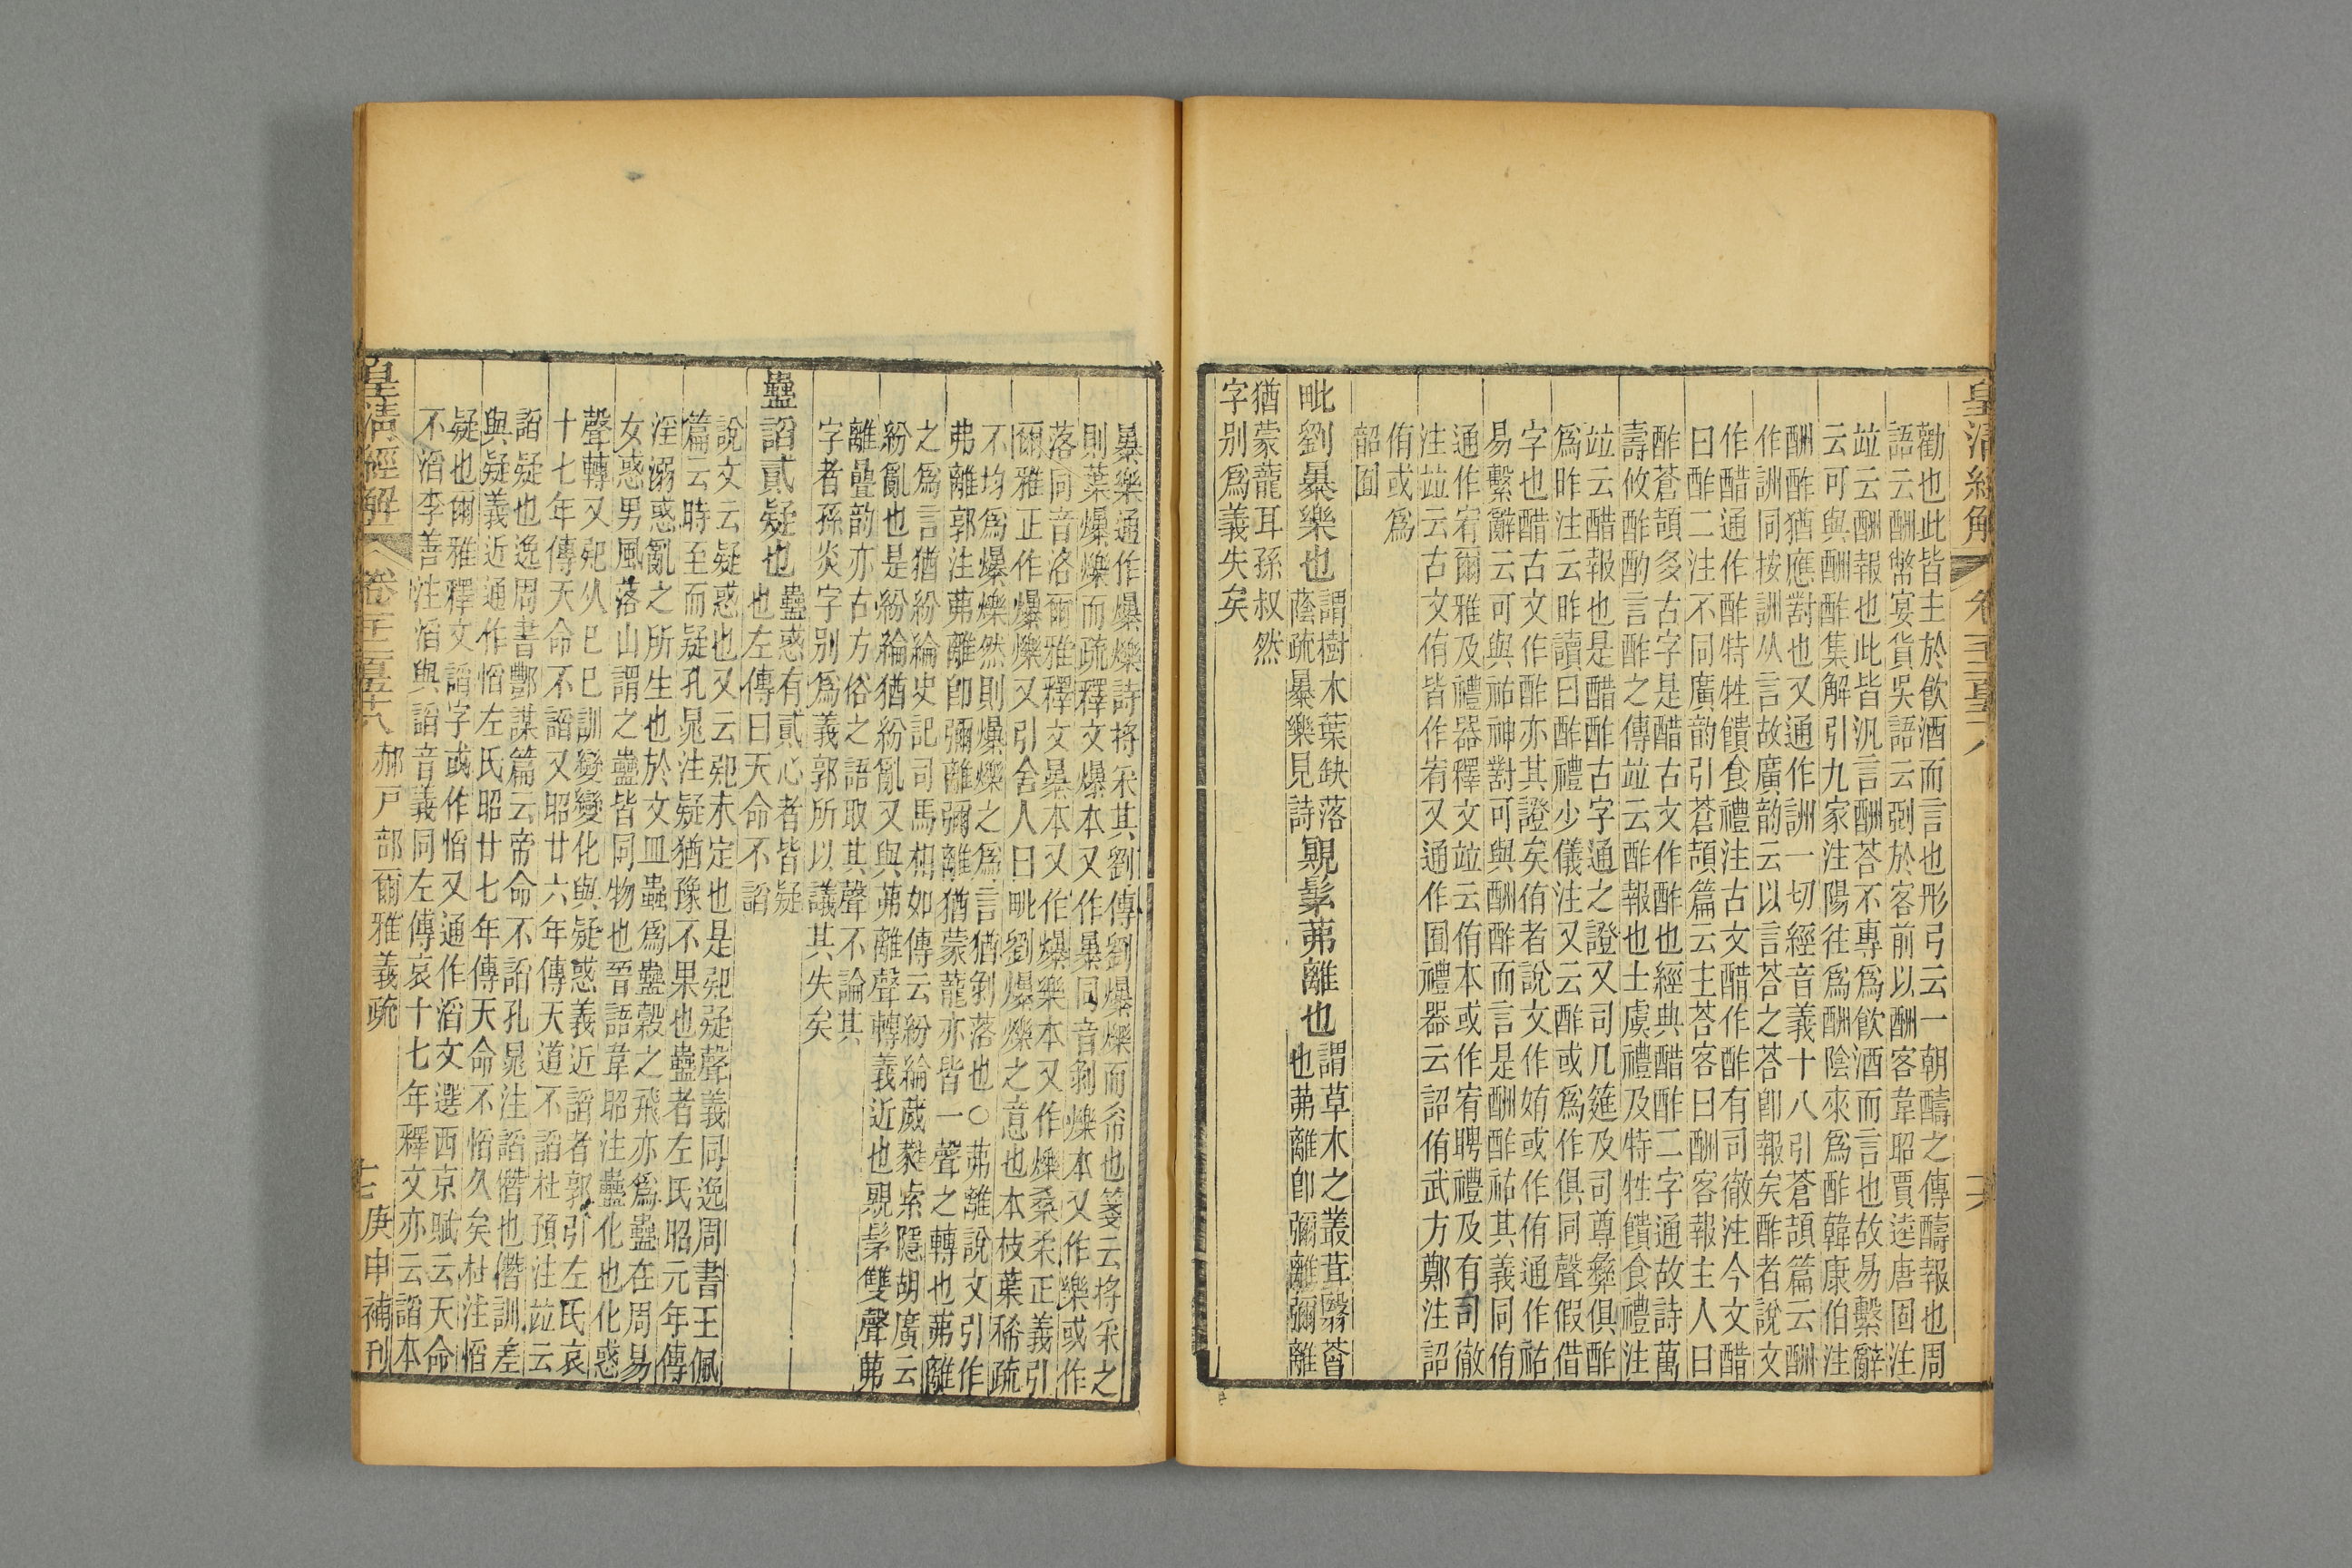 皇清經解
勸也此皆主於飮酒而言也彤弓云一朝醻之傳醻報也周
語云酬幣宴貨吳語云㓨於客前以酬客韋昭賈逵唐固注
竝云酬報也此皆汎言酬荅不專爲飮酒而言也故易繫辭
云可與酬酢集解引九家注陽往爲酬陰來爲酢韓康伯注
酬酢猶應對也又通作詶一切經音義十八引蒼頡篇云酬
作訓同按訓从言故廣韵云以言荅之荅卽報矣酢者說文
作醋通作酢特牲饋食禮注古文醋作酢有司徹注今文醋
曰酢二注不同廣韵引蒼頡篇云主荅客曰酬客報主人曰
酢蒼頡多古字是醋古文作酢也經典醋酢二字通故詩萬
壽攸酢酌言酢之傳竝云酢報也士虞禮及特牲饋食禮注
竝云醋報也是醋酢古字通之證又司几筵及司尊彝俱酢
爲昨注云昨讀曰酢禮少儀注又云酢或爲作俱同聲假借
字也醋古文作酢亦其證矣侑者說文作姷或作侑通作祐
易繫辭云可與祐神對可與酬酢而言是酬酢祐其義同侑
通作宥爾雅及禮器釋文竝云侑本或作宥聘禮及有司徹
注竝云古文侑皆作宥又通作囿禮器云詔侑武方鄭注詔
侑或爲
韶囿
毗劉暴樂也謂樹木葉缺落
蔭疏暴樂見詩覭髳茀離也謂草木之叢茸翳薈
也茀離卽彌離彌離
猶蒙蘢耳孫叔然
字别爲義失矣
暴樂通作爆爍詩捋采其劉傳劉爆爍而希也箋云捋采之
則葉爆爍而疏釋文爆本又作暴同音剝爍本又作樂或作
落同音洛爾雅釋文暴本又作爆樂本又作爍桑柔正義引
爾雅正作爆爍又引舍人曰毗劉爆爍之意也本枝葉稀疏
不均爲爆爍然則爆爍之爲言猶剝落也○茀離說文引作
弗離郭注茀離卽彌離彌離猶蒙蘢亦皆一聲之轉也茀離
之爲言猶紛綸史記司馬相如傳云紛綸葳蕤索隱胡廣云
紛亂也是紛綸猶紛亂又與茀離聲轉義近也覭髳雙聲茀
離疊韵亦古方俗之語取其聲不論其
字者孫炎字别爲義郭所以議其失矣
蠱諂貳疑也蠱惑有貳心者皆疑
也左傳曰天命不諂
說文云疑惑也又云㕈未定也是㕈疑聲義同逸周書王佩
篇云時至而疑孔晁注疑猶豫不果也蠱者左氏昭元年傳
淫溺惑亂之所生也於文皿蟲爲蠱穀之飛亦爲蠱在周易
女惑男風落山謂之蠱皆同物也晉語韋昭注蠱化也化惑
聲轉又㕈从巳巳訓變變化與疑惑義近諂者郭引左氏哀
十七年傳天命不諂又昭廿六年傳天道不諂杜預注竝云
諂疑也逸周書酆謀篇云帝命不諂孔晁注諂僭也僭訓差
與疑義近通作慆左氏昭廿七年傳天命不慆久矣杜注慆
疑也爾雅釋文諂字或作慆又通作滔文選西京賦云天命
不滔李善注滔與諂音義同左傳哀十七年釋文亦云諂本
皇清經解 卷千二百五十八 郝戸部爾雅義疏 庚申補刊